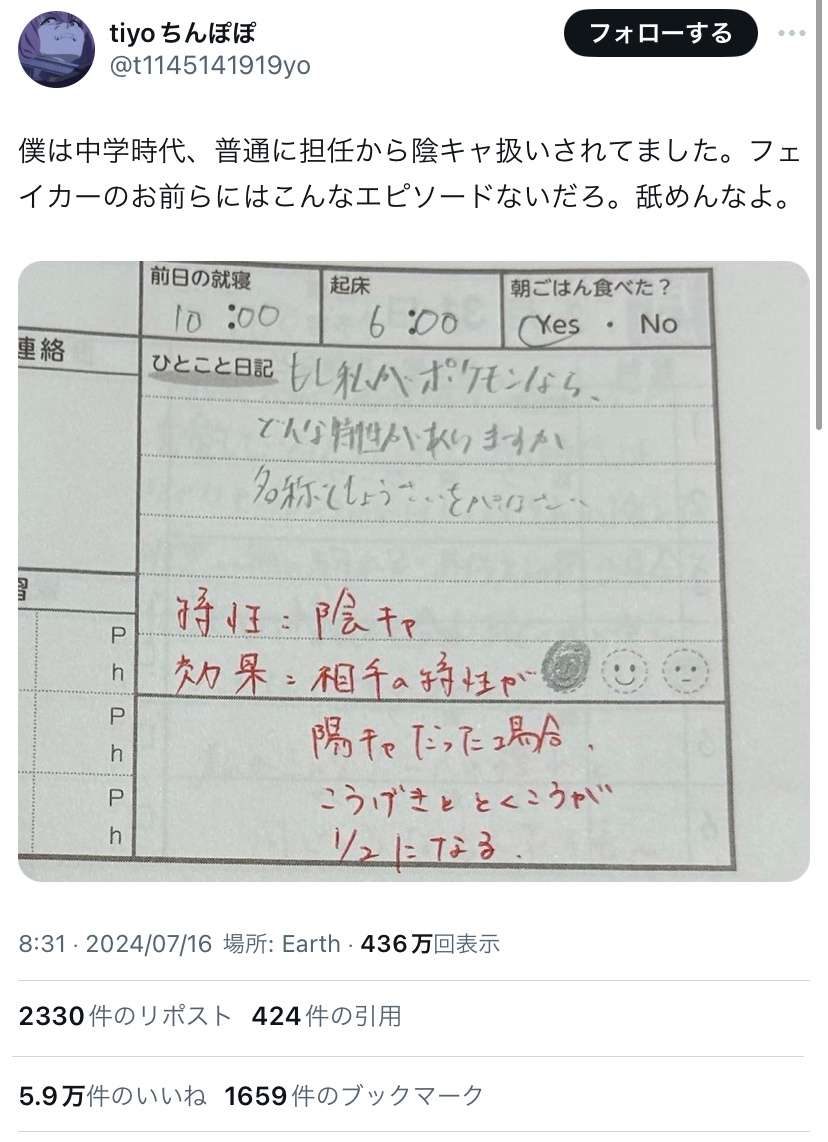 tiyoちんぽぽ
@t1145141919yo
フォローする
僕は中学時代、普通に担任から陰キャ扱いされてました。フェ
イカーのお前らにはこんなエピソードないだろ。舐めんなよ。
前日の就寝
起床
朝ごはん食べた？
10:00
6:00
Yes ・ No
連絡
ひとこと日記 もし私がポケモンなら、
どんな特性がありますか
名称としょうさいを
習
特性：陰キャ
P
効果：相手の特性が
h
陽キャだった場合、
P
h
こうげきととくこうが
P
1/2になる.
h
8:31 · 2024/07/16 場所: Earth · 436万回表示
2330件のリポスト 424件の引用
5.9万件のいいね 1659件のブックマーク